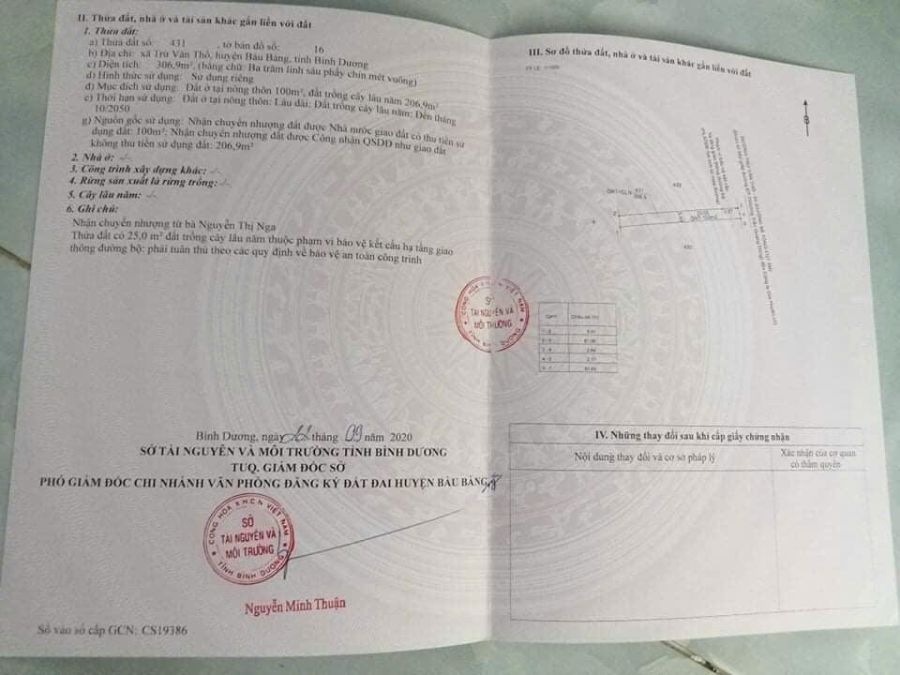 II. Thửa đất, nhà ở và tài sản khác gắn liền với đất
1. Thửa đất:
a) Thửa đất số: 431 , tờ bản đồ số: 16
b) Địa chỉ: xã Trừ Văn Thố, huyện Bàu Bàng, tỉnh Bình Dương
c) Diện tích: 306,9m², (bằng chữ: Ba trăm linh sáu phẩy chín mét vuông)
d) Hình thức sử dụng: Sử dụng riêng
đ) Mục đích sử dụng: Đất ở tại nông thôn 100m², đất trồng cây lâu năm 206,9m²
e) Thời hạn sử dụng: Đất ở tại nông thôn: Lâu dài; Đất trồng cây lâu năm: Đến tháng
10/2050
g) Nguồn gốc sử dụng: Nhận chuyển nhượng đất được Nhà nước giao đất có thu tiền sử
dụng đất: 100m²; Nhận chuyển nhượng đất được Công nhận QSDĐ như giao đất
không thu tiền sử dụng đất: 206,9m²
2. Nhà ở: -/-
3. Công trình xây dựng khác: -/-
4. Rừng sản xuất là rừng trồng: -/-
5. Cây lâu năm: -/-
6. Ghi chú:
Nhận chuyển nhượng từ bà Nguyễn Thị Nga
Thửa đất có 25,0 m² đất trồng cây lâu năm thuộc phạm vi bảo vệ kết cấu hạ tầng giao
thông đường bộ; phải tuân thủ theo các quy định về bảo vệ an toàn công trình
Bình Dương, ngày tháng 09 năm 2020
SỞ TÀI NGUYÊN VÀ MÔI TRƯỜNG TỈNH BÌNH DƯƠNG
TUQ. GIÁM ĐỐC SỞ
PHÓ GIÁM ĐỐC CHI NHÁNH VĂN PHÒNG ĐĂNG KÝ ĐẤT ĐAI HUYỆN BÀU BÀNG
CỘNG HÒA X.H.C.N VIỆT NAM
SỞ
TÀI NGUYÊN VÀ
MÔI TRƯỜNG
TỈNH BÌNH DƯƠNG
Nguyễn Minh Thuận
Số vào sổ cấp GCN: CS19386
CỘNG HÒA X.H.C.N VIỆT NAM
SỞ
TÀI NGUYÊN VÀ
MÔI TRƯỜNG
TỈNH BÌNH DƯƠNG
III. Sơ đồ thửa đất, nhà ở và tài sản khác gắn liền với đất
B
IV. Những thay đổi sau khi cấp giấy chứng nhận
Nội dung thay đổi và cơ sở pháp lý
Xác nhận của cơ quan
có thẩm quyền